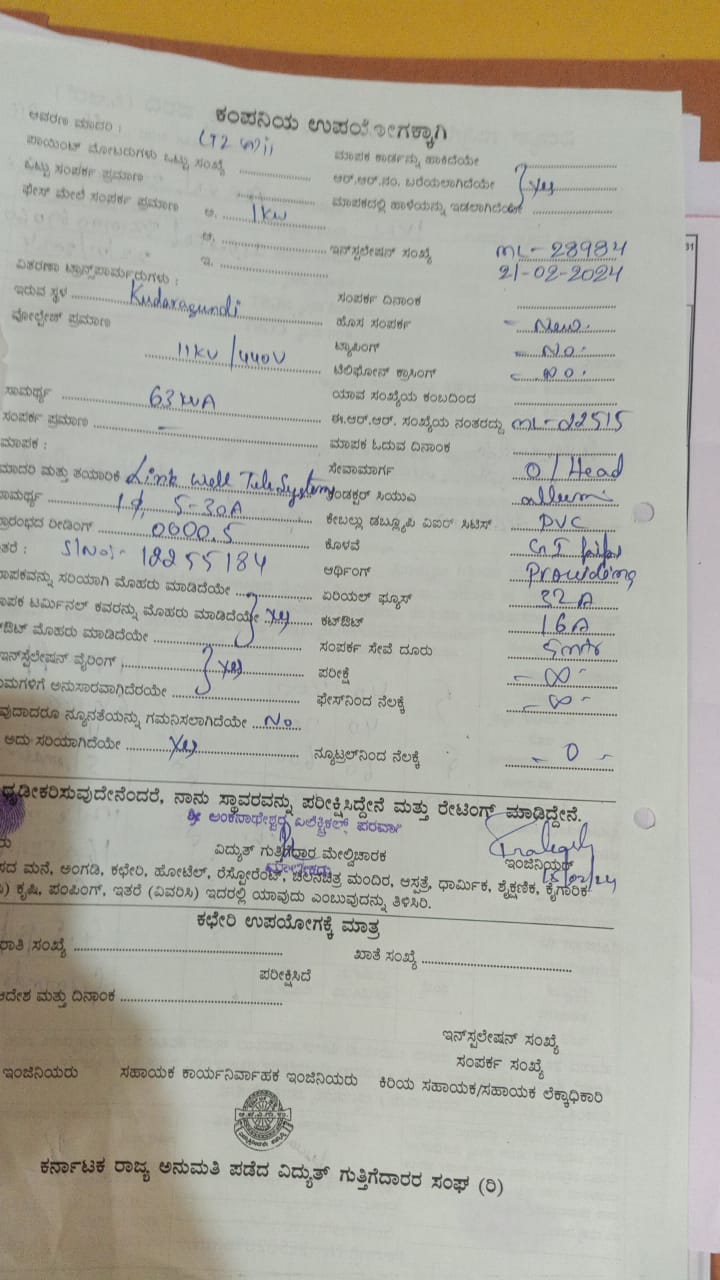 ಕಂಪನಿಯ ಉಪಯೋಗಕ್ಕಾಗಿ
ಆವರಣ ಮಾದರಿ : LT2
ಮಾಪಕ ಕಾರ್ಡನ್ನು ಹಾಕಿದೆಯೇ
ಪಾಯಿಂಟ್ ಮೋಟರುಗಳು ಒಟ್ಟು ಸಂಖ್ಯೆ
ಆರ್.ಆರ್.ನಂ. ಬರೆಯಲಾಗಿದೆಯೇ yes
ಒಟ್ಟು ಸಂಪರ್ಕ ಪ್ರಮಾಣ
ಮಾಪಕದಲ್ಲಿ ಹಾಳೆಯನ್ನು ಇಡಲಾಗಿದೆಯೇ
ಫೇಸ್ ಮೇಲೆ ಸಂಪರ್ಕ ಪ್ರಮಾಣ ಅ. 1kw
ಆ.
ಇನ್‌ಸ್ಟಲೇಷನ್ ಸಂಖ್ಯೆ ML-28984
ಇ.
21-02-2024
ವಿತರಣಾ ಟ್ರಾನ್ಸ್‌ಪಾರ್ಮರುಗಳು :
ಸಂಪರ್ಕ ದಿನಾಂಕ
ಇರುವ ಸ್ಥಳ Kudaragundi
ಹೊಸ ಸಂಪರ್ಕ - New.
ವೋಲ್ಟೇಜ್ ಪ್ರಮಾಣ
ಟ್ಯಾಪಿಂಗ್ - No.
11KV/440V
ಟೆಲಿಫೋನ್ ಕ್ರಾಸಿಂಗ್ - No.
ಸಾಮರ್ಥ್ಯ 63 KVA
ಯಾವ ಸಂಖ್ಯೆಯ ಕಂಬದಿಂದ
ಸಂಪರ್ಕ ಪ್ರಮಾಣ -
ಈ.ಆರ್.ಆರ್. ಸಂಖ್ಯೆಯ ನಂತರದ್ದು ML-22515
ಮಾಪಕ :
ಮಾಪಕ ಓದುವ ದಿನಾಂಕ
ಮಾದರಿ ಮತ್ತು ತಯಾರಿಕ Link well Tele Systems
ಸೇವಾಮಾರ್ಗ O/Head
ಸಾಮರ್ಥ್ಯ 1φ, 5-30A
ಕಂಡಕ್ಟರ್ ಸಿಯುಎ allumi
ಪ್ರಾರಂಭದ ರೀಡಿಂಗ್ 0000.5
ಕೇಬಲ್ಲು ಡಬ್ಲ್ಯೂಪಿ ಎಐರ್ ಸಿಟಿಸ್ PVC
ಇತರೆ : Sl No:- 18255184
ಕೊಳವೆ GI
ಆರ್ಥಿಂಗ್ Providing
ಮಾಪಕವನ್ನು ಸರಿಯಾಗಿ ಮೊಹರು ಮಾಡಿದೆಯೇ
ಏರಿಯಲ್ ಫ್ಯೂಸ್ 32A
ಮಾಪಕ ಟರ್ಮಿನಲ್ ಕವರನ್ನು ಮೊಹರು ಮಾಡಿದೆಯೇ yes
ಕಟ್‌ಔಟ್ 16A
ಕಟ್‌ಔಟ್ ಮೊಹರು ಮಾಡಿದೆಯೇ
ಸಂಪರ್ಕ ಸೇವೆ ದೂರು 5mtr
ಇನ್‌ಸ್ಟಲೇಷನ್ ವೈರಿಂಗ್ yes
ಪರೀಕ್ಷೆ - ∞ -
ನಿಯಮಗಳಿಗೆ ಅನುಸಾರವಾಗಿದೆರಯೇ
ಫೇಸ್‌ನಿಂದ ನೆಲಕ್ಕೆ - ∞ -
ಯಾವುದಾದರೂ ನ್ಯೂನತೆಯನ್ನು ಗಮನಿಸಲಾಗಿದೆಯೇ No
ಅದು ಸರಿಯಾಗಿದೆಯೇ yes
ನ್ಯೂಟ್ರಲ್‌ನಿಂದ ನೆಲಕ್ಕೆ - 0 -
ಧೃಡೀಕರಿಸುವುದೇನೆಂದರೆ, ನಾನು ಸ್ಥಾವರವನ್ನು ಪರೀಕ್ಷಿಸಿದ್ದೇನೆ ಮತ್ತು ರೇಟಿಂಗ್ ಮಾಡಿದ್ದೇನೆ.
ಶ್ರೀ ಅಂಕನಾಥೇಶ್ವರ ಎಲೆಕ್ಟ್ರಿಕಲ್ಸ್ ಪರವಾಗಿ
ವಿದ್ಯುತ್ ಗುತ್ತಿಗೆದಾರ ಮೇಲ್ವಿಚಾರಕ
ಇಂಜಿನಿಯರ್
ಮಾಲೀಕರು
ವಾಸದ ಮನೆ, ಅಂಗಡಿ, ಕಛೇರಿ, ಹೋಟೆಲ್, ರೆಸ್ಟೋರೆಂಟ್, ಚಲನಚಿತ್ರ ಮಂದಿರ, ಆಸ್ಪತ್ರೆ, ಧಾರ್ಮಿಕ, ಶೈಕ್ಷಣಿಕ, ಕೈಗಾರಿಕ
ಕೃಷಿ, ಪಂಪಿಂಗ್, ಇತರೆ (ವಿವರಿಸಿ) ಇದರಲ್ಲಿ ಯಾವುದು ಎಂಬುವುದನ್ನು ತಿಳಿಸಿರಿ.
ಕಛೇರಿ ಉಪಯೋಗಕ್ಕೆ ಮಾತ್ರ
ಸಂಖ್ಯೆ
ಖಾತೆ ಸಂಖ್ಯೆ
ಪರೀಕ್ಷಿಸಿದೆ
ಆದೇಶ ಮತ್ತು ದಿನಾಂಕ
ಇನ್‌ಸ್ಟಲೇಷನ್ ಸಂಖ್ಯೆ
ಸಂಪರ್ಕ ಸಂಖ್ಯೆ
ಇಂಜಿನಿಯರು ಸಹಾಯಕ ಕಾರ್ಯನಿರ್ವಾಹಕ ಇಂಜಿನಿಯರು ಕಿರಿಯ ಸಹಾಯಕ/ಸಹಾಯಕ ಲೆಕ್ಕಾಧಿಕಾರಿ
ಕರ್ನಾಟಕ ರಾಜ್ಯ ಅನುಮತಿ ಪಡೆದ ವಿದ್ಯುತ್ ಗುತ್ತಿಗೆದಾರರ ಸಂಘ (ರಿ)